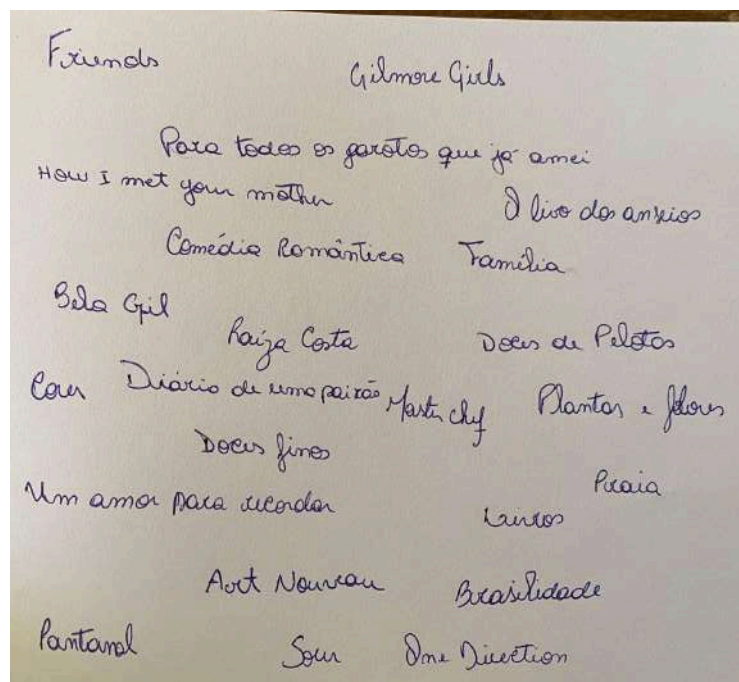 Friends
Gilmore Girls
Para todos os garotos que já amei
How I met your mother
O livo dos anseios
Comédia Romântica Família
Bela Gil
Raiza Costa Doces de Pelotas
Cores Diário de uma paixão Master chef Plantas e flores
Doces finos
Praia
Um amor para recordar
Livros
Art Nouveau Brasilidade
Pantanal Sour One Direction